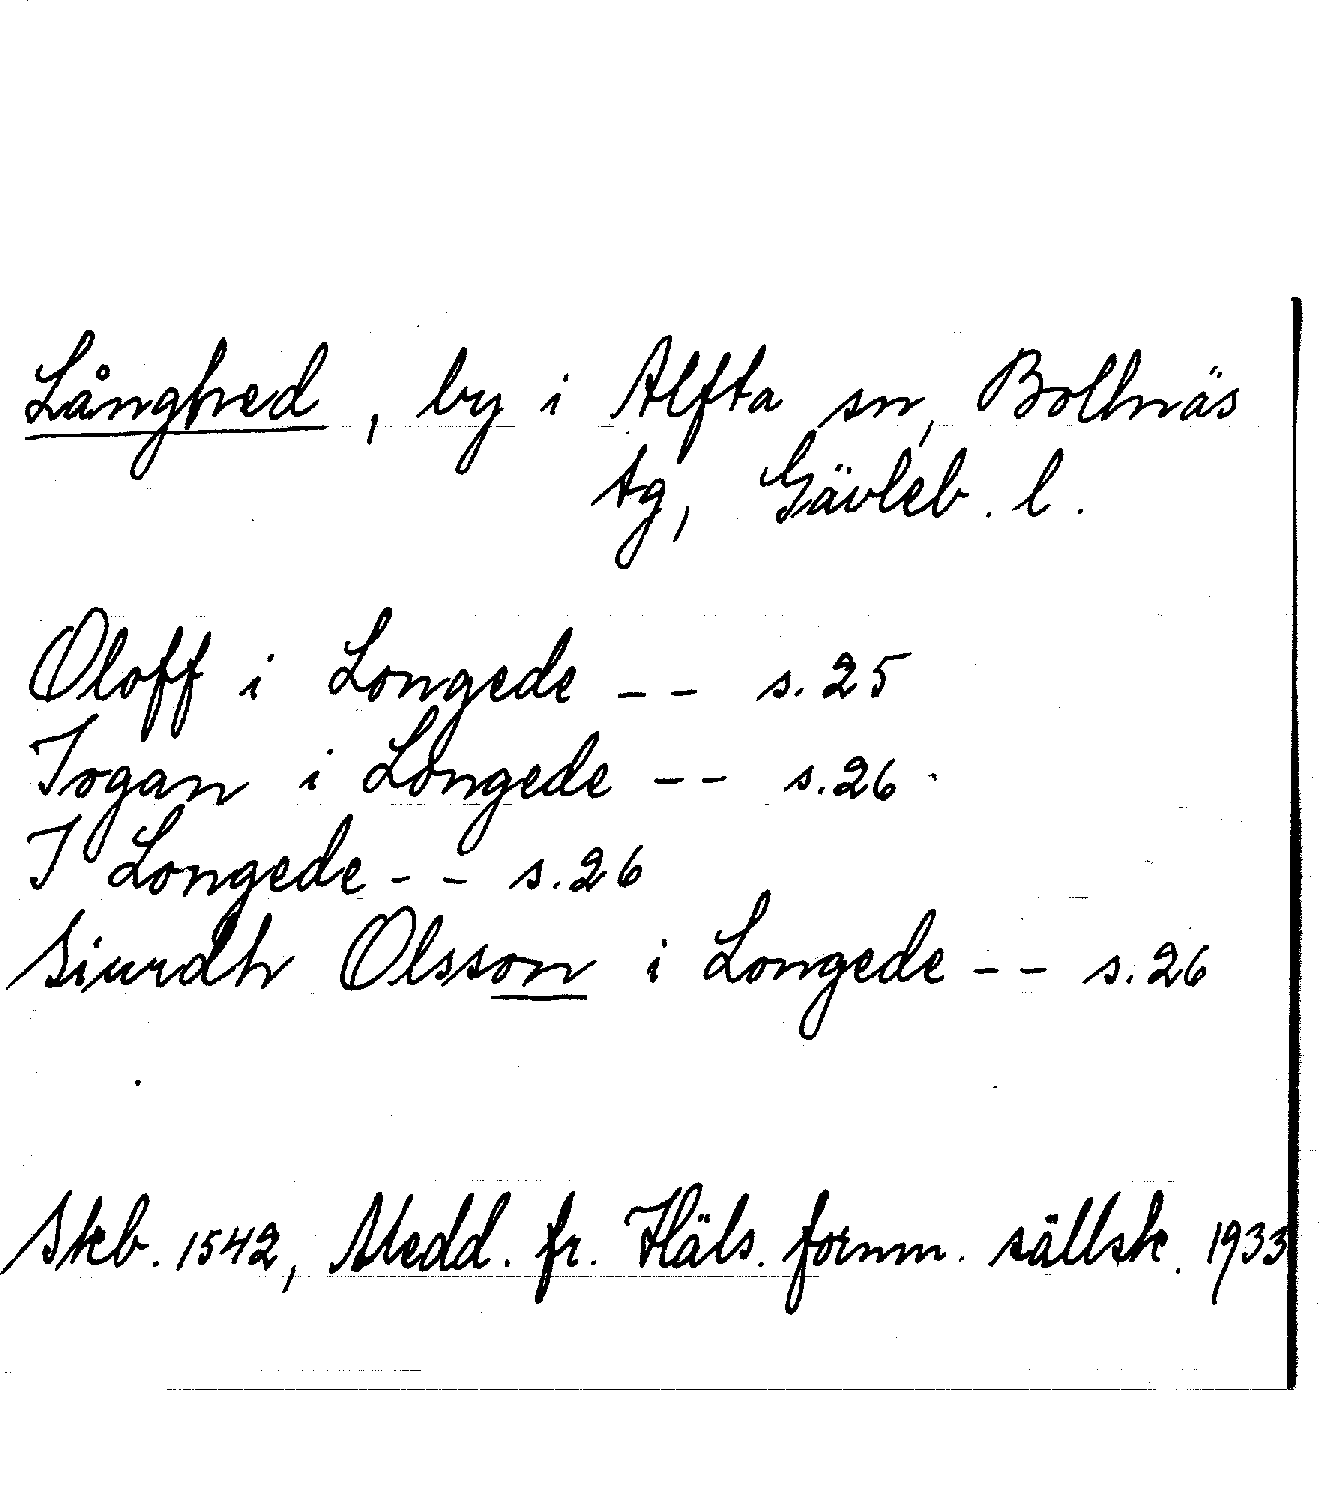 Långhed, by i Alfta sn, Bollnäs
tg, Gävleb. l.
Oloff i Longede -- s. 25
Jogan i Longede -- s. 26
J Longede -- s. 26
Siurdh Olsson i Longede -- s. 26
Skb. 1542, Medd. fr. Häls. fornm. sällsk. 1933